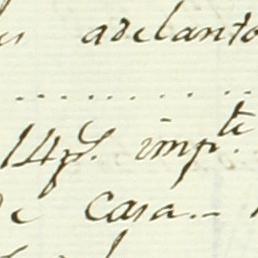 adelanto
..........
14 p.s imp.te
de casa..